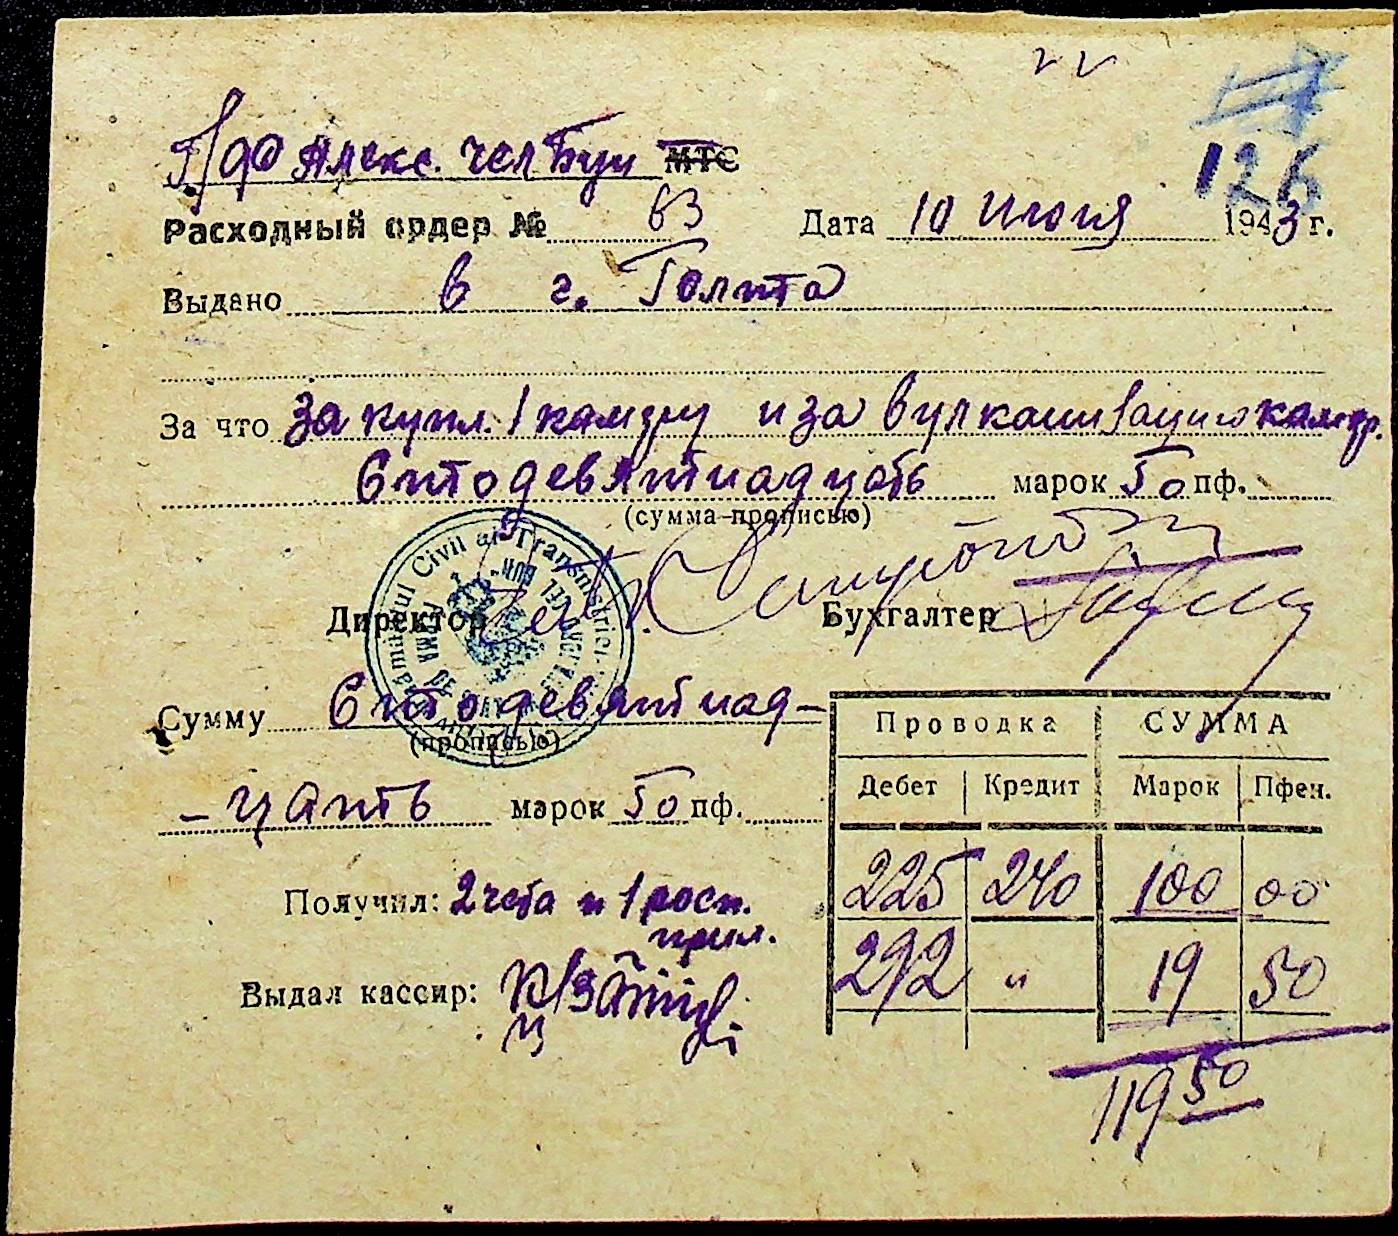 126
Алекс. МТС
Расходный ордер № 63 Дата 10 Июня 1943 г.
Выдано в г. Голта
За что за купл. 1 камеру и за вулканизацию камер.
Стодевятнадцать марок 50 пф.
(сумма прописью)
Guvernământul Civil al Transnistriei
Директор Бухгалтер
Сумму Стодевятнад-
(прописью)
-цать марок 50 пф.
Получил: 2 счета и 1 росп.
прил.
Выдал кассир:
Проводка СУММА
Дебет Кредит Марок Пфен.
225 240 100 00
292 " 19 50
119 50